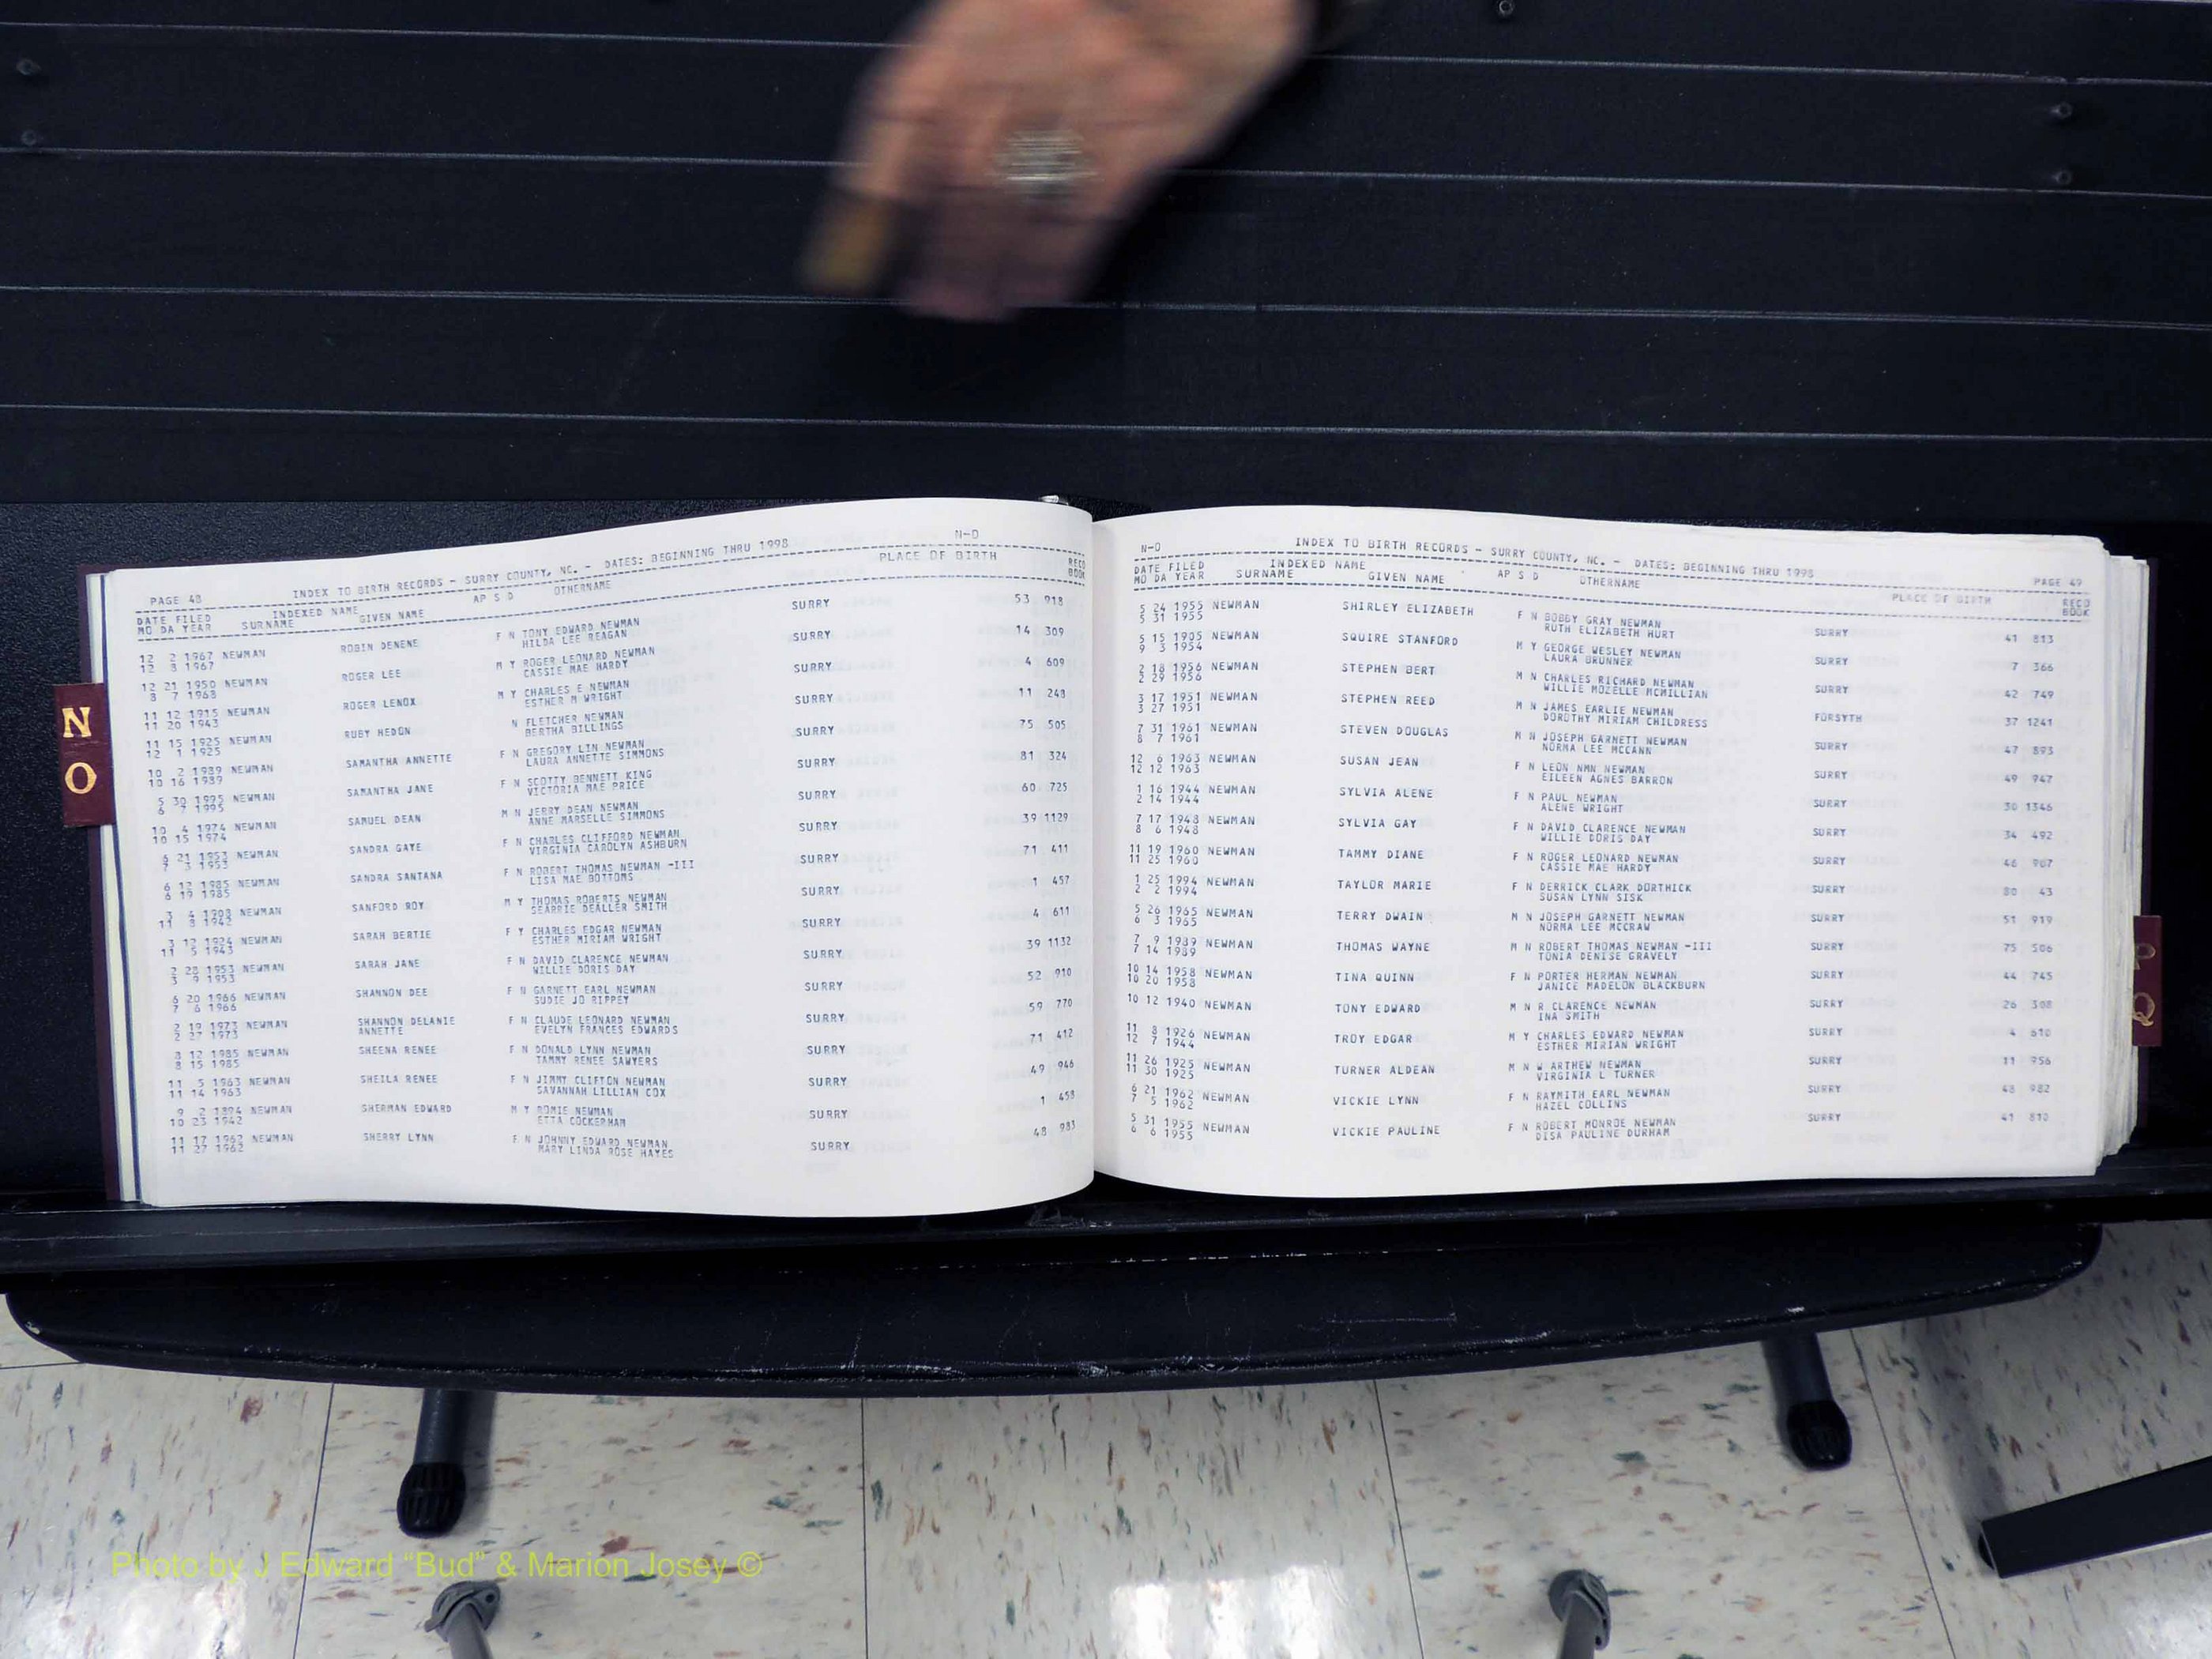 N
O
PAGE 48 INDEX TO BIRTH RECORDS - SURRY COUNTY, NC. - DATES: BEGINNING THRU 1998 N-O
DATE FILED INDEXED NAME AP S D OTHERNAME PLACE OF BIRTH RECO
MO DA YEAR SURNAME GIVEN NAME BOOK
12 2 1967 NEWMAN ROBIN DENENE F N TONY EDWARD NEWMAN SURRY 53 918
12 8 1967 HILDA LEE REAGAN
12 21 1950 NEWMAN ROGER LEE M Y ROGER LEONARD NEWMAN SURRY 14 309
8 7 1968 CASSIE MAE HARDY
11 12 1915 NEWMAN ROGER LENOX M Y CHARLES E NEWMAN SURRY 4 609
11 20 1943 ESTHER M WRIGHT
11 15 1925 NEWMAN RUBY HEDON N FLETCHER NEWMAN SURRY 11 248
12 1 1925 BERTHA BILLINGS
10 2 1989 NEWMAN SAMANTHA ANNETTE F N GREGORY LIN NEWMAN SURRY 75 505
10 16 1989 LAURA ANNETTE SIMMONS
5 30 1995 NEWMAN SAMANTHA JANE F N SCOTTY BENNETT KING SURRY 81 324
6 7 1995 VICTORIA MAE PRICE
10 4 1974 NEWMAN SAMUEL DEAN M N JERRY DEAN NEWMAN SURRY 60 725
10 15 1974 ANNE MARSELLE SIMMONS
6 21 1953 NEWMAN SANDRA GAYE F N CHARLES CLIFFORD NEWMAN SURRY 39 1129
7 3 1953 VIRGINIA CAROLYN ASHBURN
6 12 1985 NEWMAN SANDRA SANTANA F N ROBERT THOMAS NEWMAN -III SURRY 71 411
6 19 1985 LISA MAE BOTTOMS
3 4 1908 NEWMAN SANFORD ROY M Y THOMAS ROBERTS NEWMAN SURRY 1 457
11 8 1942 SEARRIE DEALLER SMITH
3 12 1924 NEWMAN SARAH BERTIE F Y CHARLES EDGAR NEWMAN SURRY 4 611
11 5 1943 ESTHER MIRIAM WRIGHT
2 28 1953 NEWMAN SARAH JANE F N DAVID CLARENCE NEWMAN SURRY 39 1132
3 9 1953 WILLIE DORIS DAY
6 20 1966 NEWMAN SHANNON DEE F N GARNETT EARL NEWMAN SURRY 52 910
7 6 1966 SUDIE JO RIPPEY
2 19 1973 NEWMAN SHANNON DELANIE F N CLAUDE LEONARD NEWMAN SURRY 59 770
2 27 1973 ANNETTE EVELYN FRANCES EDWARDS
8 12 1985 NEWMAN SHEENA RENEE F N DONALD LYNN NEWMAN SURRY 71 412
8 15 1985 TAMMY RENEE SAWYERS
11 5 1963 NEWMAN SHEILA RENEE F N JIMMY CLIFTON NEWMAN SURRY 49 946
11 14 1963 SAVANNAH LILLIAN COX
9 2 1894 NEWMAN SHERMAN EDWARD M Y ROMIE NEWMAN SURRY 1 458
10 23 1942 ETTA COCKERHAM
11 17 1962 NEWMAN SHERRY LYNN F N JOHNNY EDWARD NEWMAN SURRY 48 983
11 27 1962 MARY LINDA ROSE HAYES
N-O INDEX TO BIRTH RECORDS - SURRY COUNTY, NC. - DATES: BEGINNING THRU 1998 PAGE 49
DATE FILED INDEXED NAME AP S D OTHERNAME PLACE OF BIRTH RECO
MO DA YEAR SURNAME GIVEN NAME BOOK
5 24 1955 NEWMAN SHIRLEY ELIZABETH F N BOBBY GRAY NEWMAN SURRY 41 813
5 31 1955 RUTH ELIZABETH HURT
5 15 1905 NEWMAN SQUIRE STANFORD M Y GEORGE WESLEY NEWMAN SURRY 7 366
9 3 1954 LAURA BRUNNER
2 18 1956 NEWMAN STEPHEN BERT M N CHARLES RICHARD NEWMAN SURRY 42 749
2 29 1956 WILLIE MOZELLE MCMILLIAN
3 17 1951 NEWMAN STEPHEN REED M N JAMES EARLIE NEWMAN FORSYTH 37 1241
3 27 1951 DOROTHY MIRIAM CHILDRESS
7 31 1961 NEWMAN STEVEN DOUGLAS M N JOSEPH GARNETT NEWMAN SURRY 47 893
8 7 1961 NORMA LEE MCCANN
12 6 1963 NEWMAN SUSAN JEAN F N LEON NMN NEWMAN SURRY 49 947
12 12 1963 EILEEN AGNES BARRON
1 16 1944 NEWMAN SYLVIA ALENE F N PAUL NEWMAN SURRY 30 1346
2 14 1944 ALENE WRIGHT
7 17 1948 NEWMAN SYLVIA GAY F N DAVID CLARENCE NEWMAN SURRY 34 492
8 6 1948 WILLIE DORIS DAY
11 19 1960 NEWMAN TAMMY DIANE F N ROGER LEONARD NEWMAN SURRY 46 987
11 25 1960 CASSIE MAE HARDY
1 25 1994 NEWMAN TAYLOR MARIE F N DERRICK CLARK DORTHICK SURRY 80 43
2 2 1994 SUSAN LYNN SISK
5 26 1965 NEWMAN TERRY DWAIN M N JOSEPH GARNETT NEWMAN SURRY 51 919
6 3 1965 NORMA LEE MCCRAW
7 9 1989 NEWMAN THOMAS WAYNE M N ROBERT THOMAS NEWMAN -III SURRY 75 506
7 14 1989 TONIA DENISE GRAVELY
10 14 1958 NEWMAN TINA QUINN F N PORTER HERMAN NEWMAN SURRY 44 745
10 20 1958 JANICE MADELON BLACKBURN
10 12 1940 NEWMAN TONY EDWARD M N R CLARENCE NEWMAN SURRY 26 308
INA SMITH
11 8 1926 NEWMAN TROY EDGAR M Y CHARLES EDWARD NEWMAN SURRY 4 610
12 7 1944 ESTHER MIRIAN WRIGHT
11 26 1925 NEWMAN TURNER ALDEAN M N W ARTHEW NEWMAN SURRY 11 956
11 30 1925 VIRGINIA L TURNER
6 21 1962 NEWMAN VICKIE LYNN F N RAYMITH EARL NEWMAN SURRY 48 982
7 5 1962 HAZEL COLLINS
5 31 1955 NEWMAN VICKIE PAULINE F N ROBERT MONROE NEWMAN SURRY 41 810
6 6 1955 DISA PAULINE DURHAM
Photo by J Edward “Bud” & Marion Josey ©